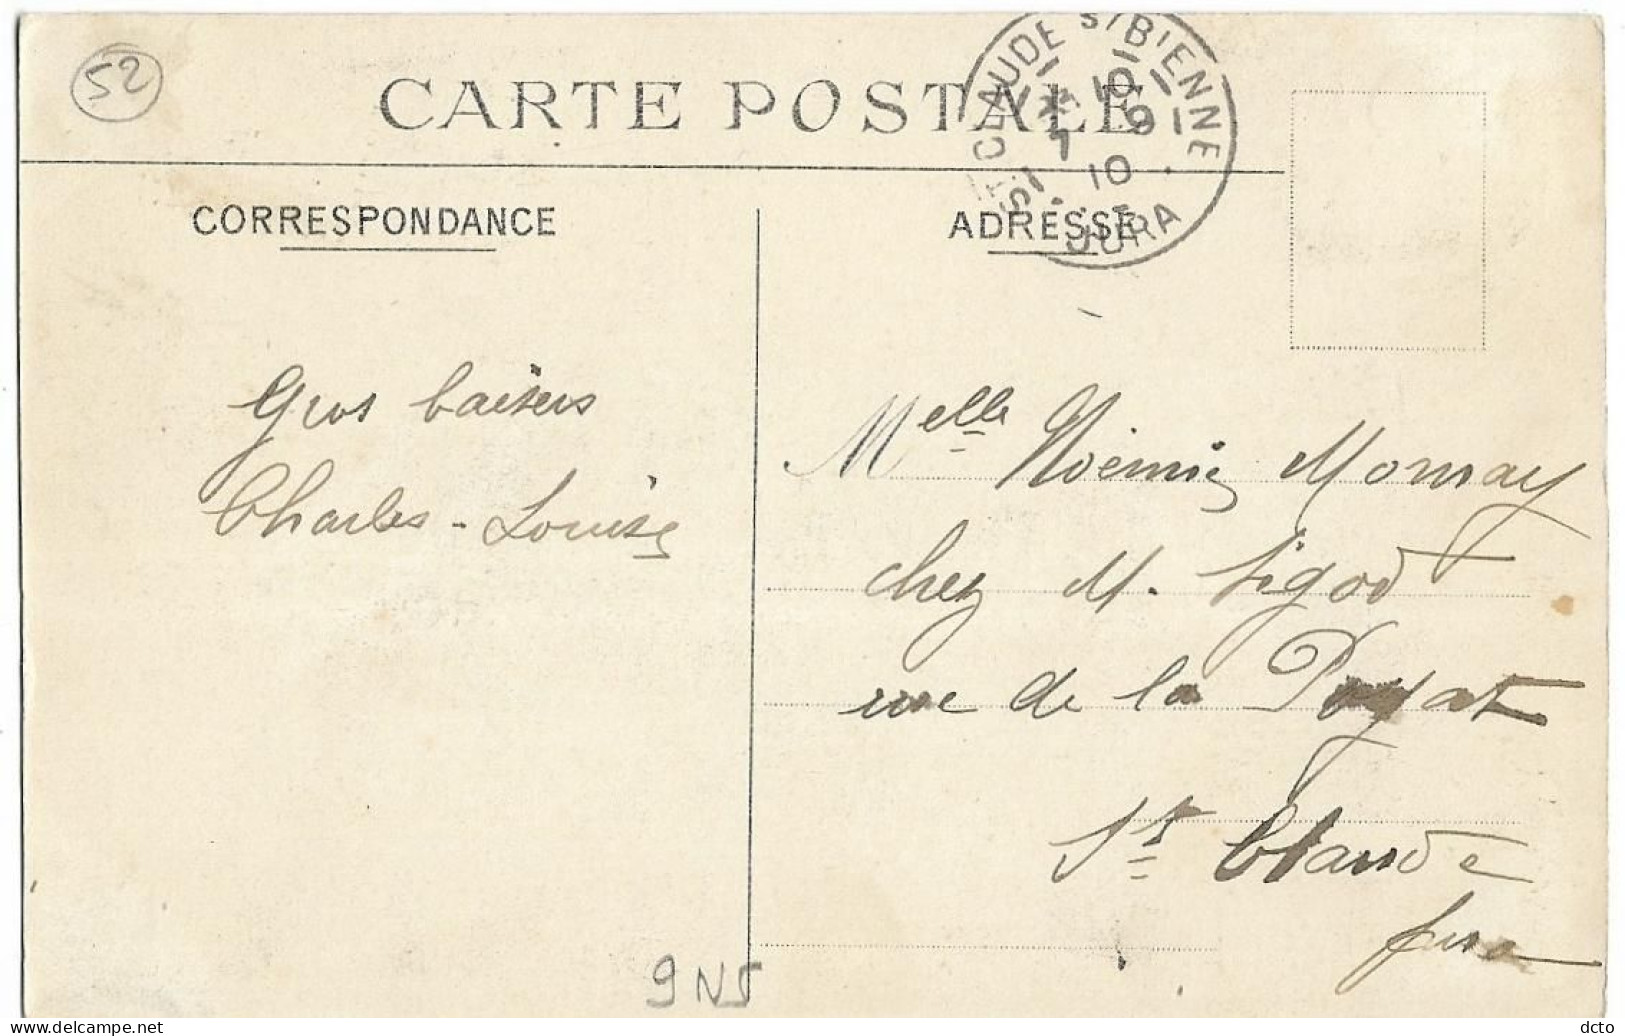 52
CARTE POSTALE
ST CLAUDE S/ BIENNE
7 10
9
10
JURA
CORRESPONDANCE
ADRESSE
Gros baisers
Charles - Louise
Melle Noémie Monnay
chez M. Vigod
rue de la Poyat
St Claude
Jura
9 N5
dcto